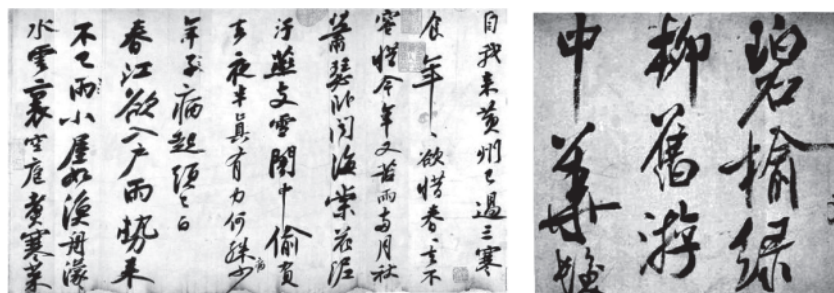 自我來黃州已過三寒
食年〻欲惜春〻去不
容惜今年又苦雨兩月秋
蕭瑟卧聞海棠花泥
汙燕支雪闇中偷負
去夜半真有力何殊病少
年子病起頭已白
春江欲入戶雨勢來
不已雨小屋如漁舟濛〻
水雲裏空庖煮寒菜
碧榆綠
柳舊游
中華髮